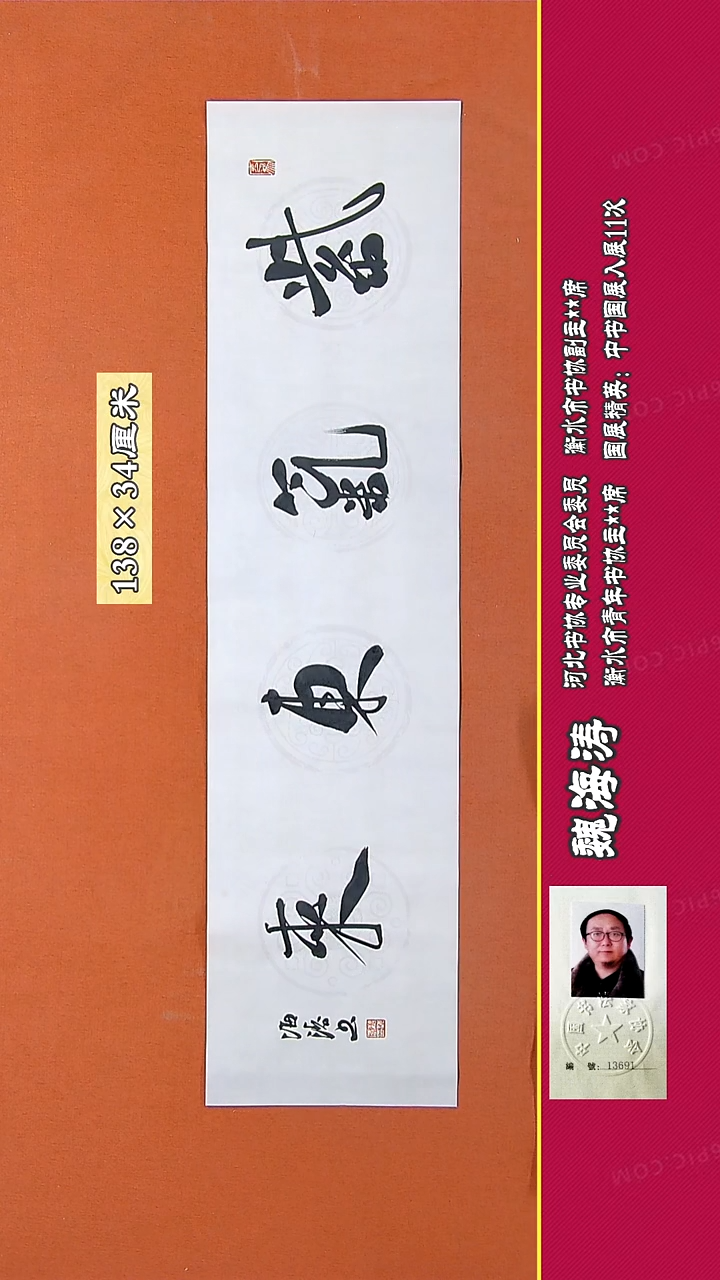 138×34厘米
紫氣東來
海涛书
魏海涛
河北书协专业委员会委员 衡水市书协副主**席
衡水市青年书协主**席 国展精英：中书国展入展11次
編 號：13691